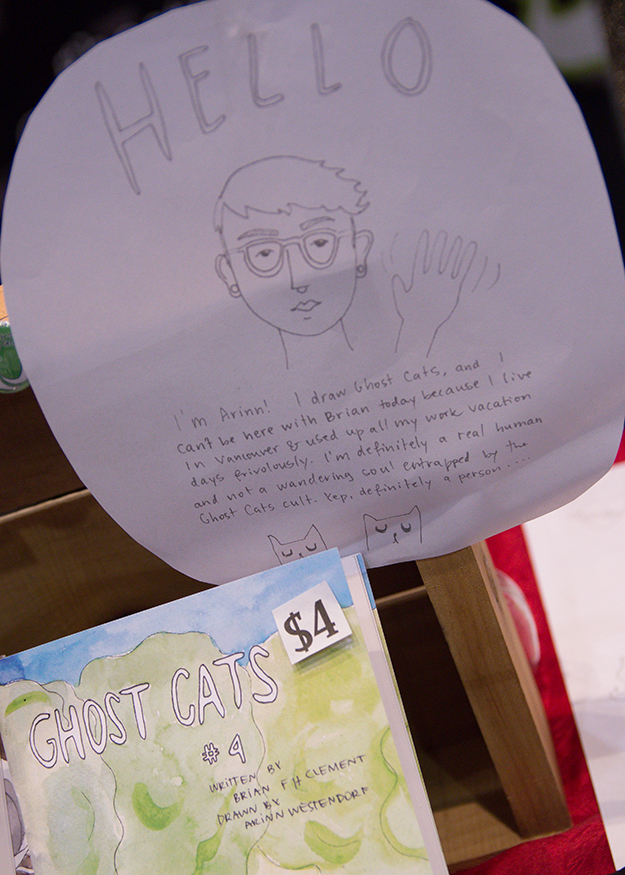 HELLO
I'm Arinn! I draw Ghost Cats, and I
can't be here with Brian today because I live
in Vancouver & used up all my work vacation
days frivolously. I'm definitely a real human
and not a wandering soul entrapped by the
Ghost Cats cult. Yep, definitely a person....
$4
GHOST CATS
#4
WRITTEN BY
BRIAN F H CLEMENT
DRAWN BY
ARINN WESTENDORF